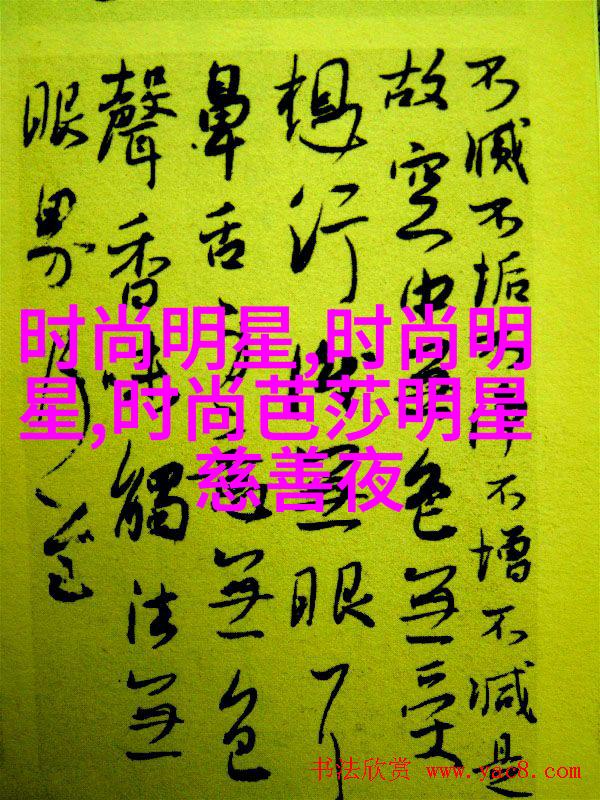 不滅不垢不淨不增不減是
故空中無色無受
想行識無眼耳
鼻舌身意無色
聲香味觸法無
眼界乃至
时尚明星,时尚明
星,时尚芭莎明星
慈善夜
书法欣赏 www.yac8.com